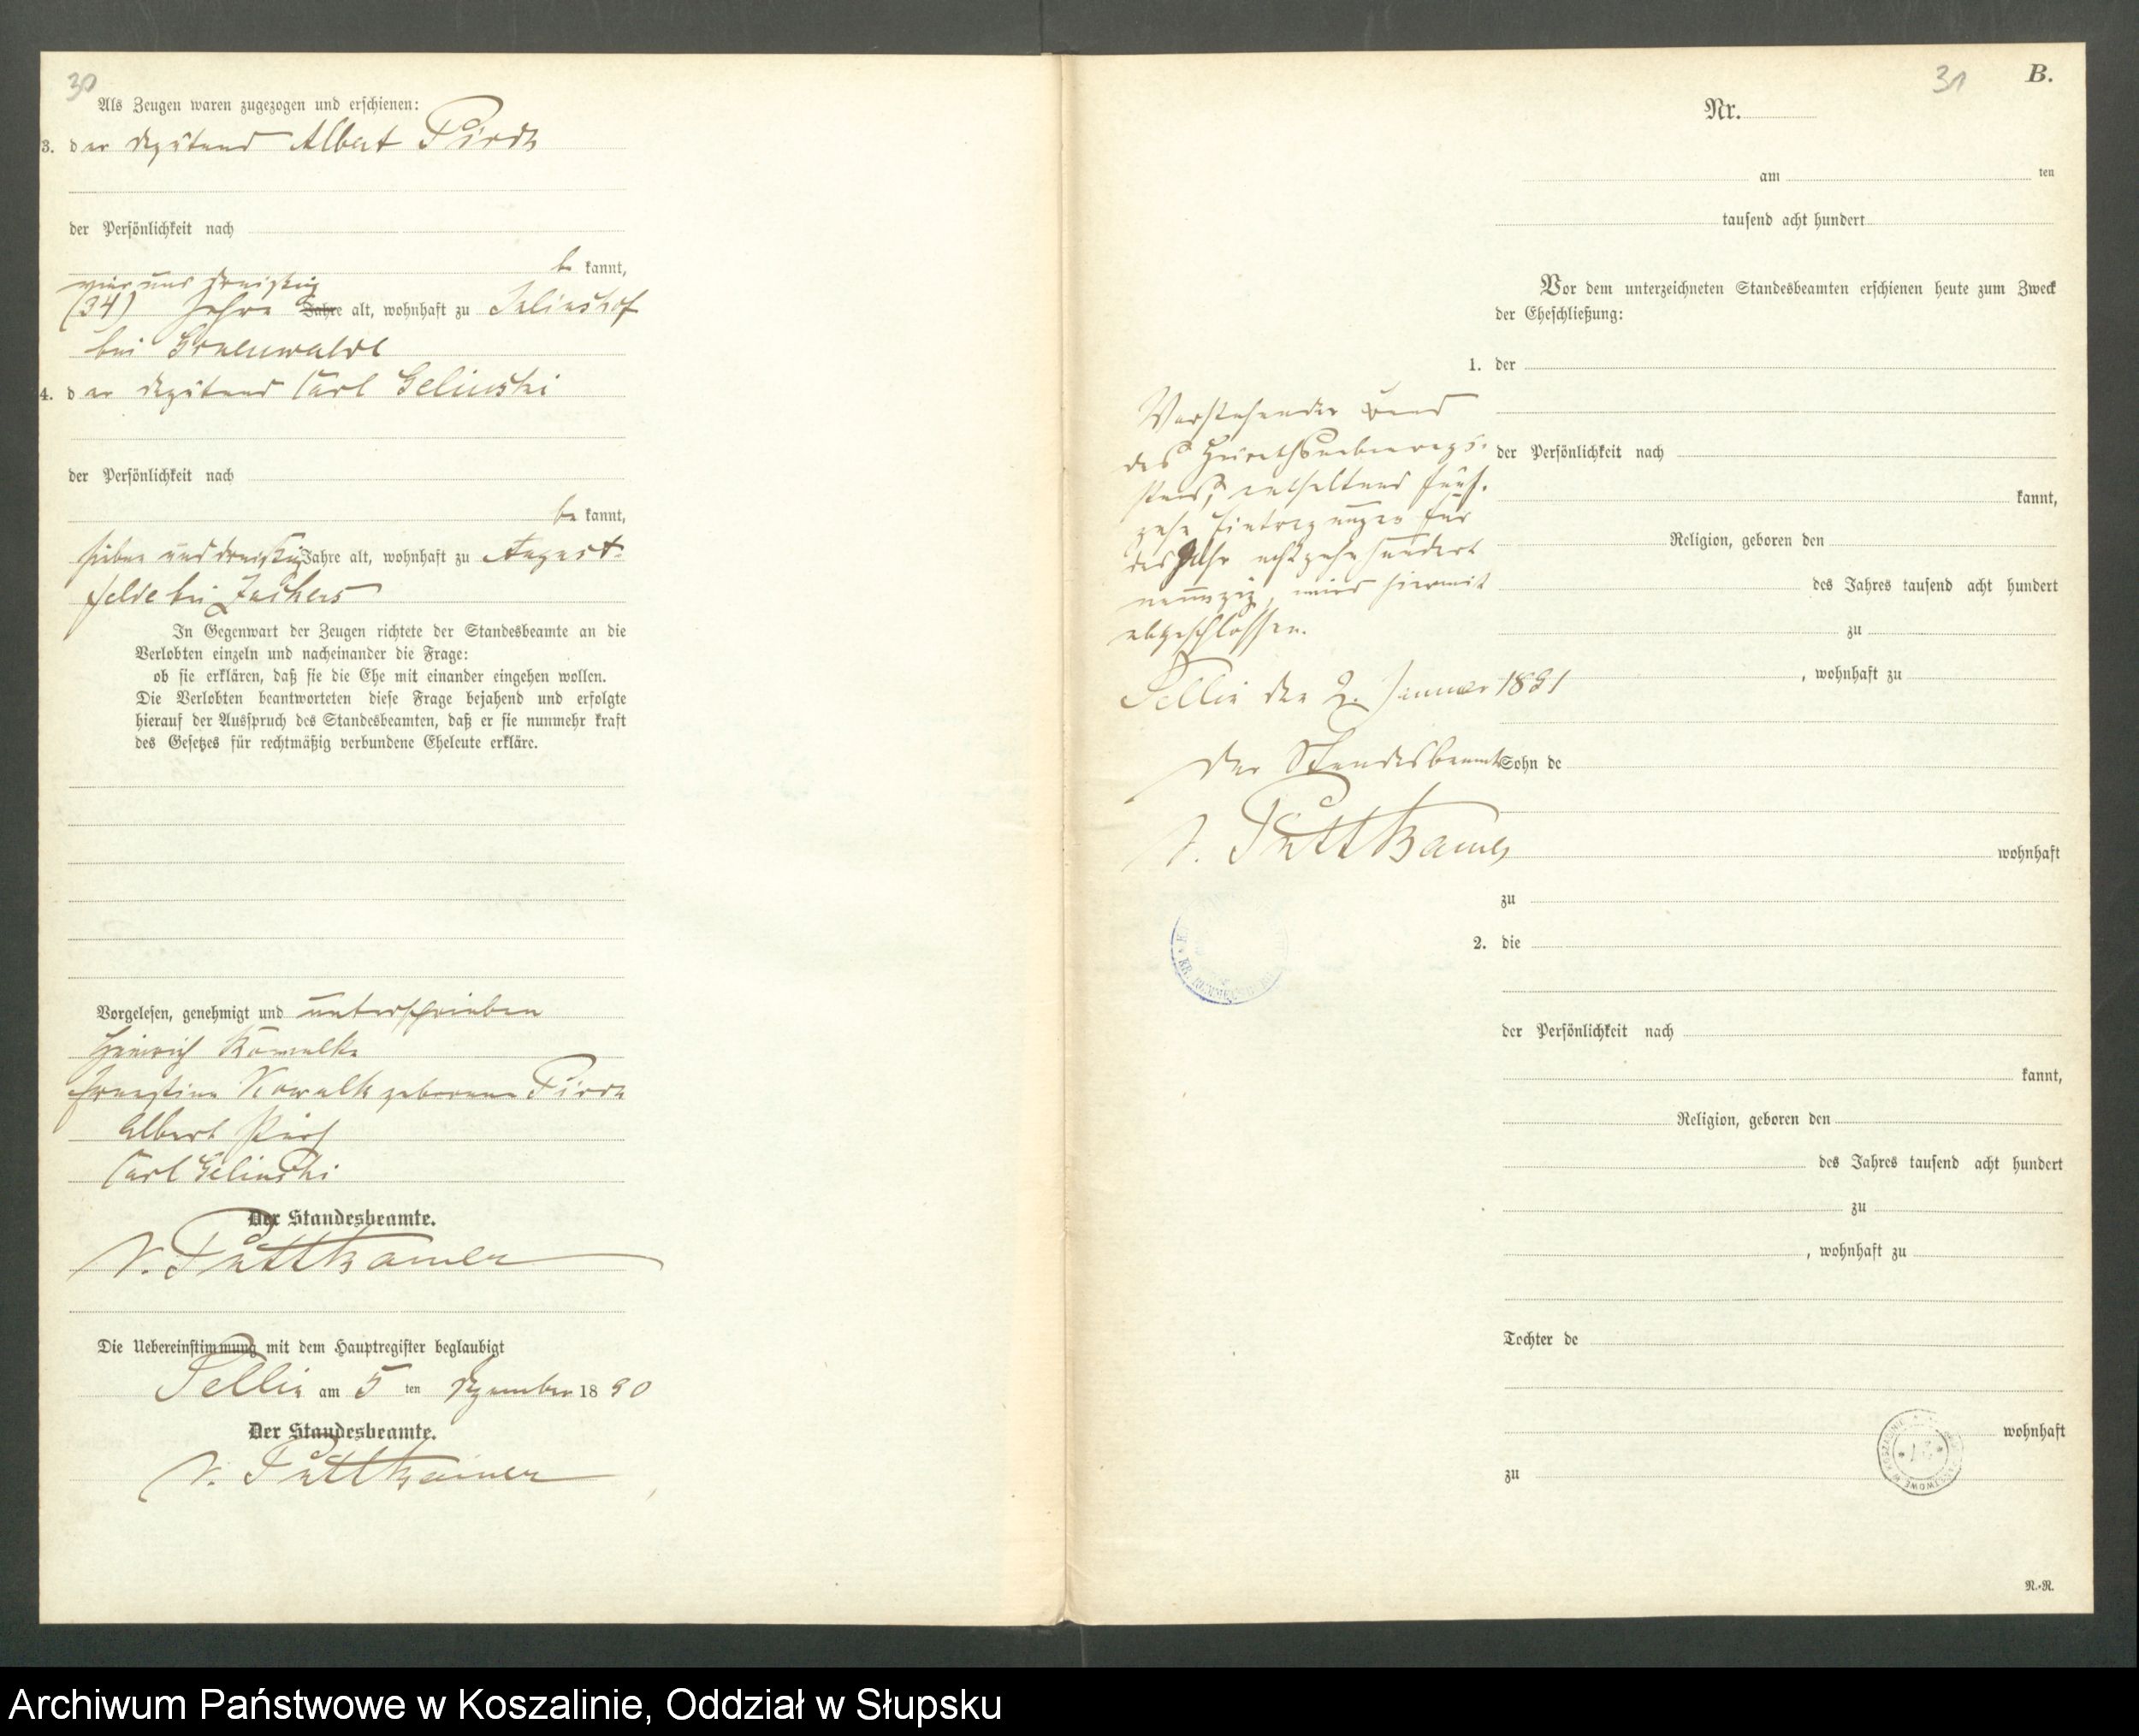 30
Als Zeugen waren zugezogen und erschienen:
3. der Albert Pirch
der Persönlichkeit nach
be kannt,
vier und dreißig
(34) Jahre Jahre alt, wohnhaft zu Julienshof
bei Grunenwalde
4. der Carl Gelinski
der Persönlichkeit nach
be kannt,
sieben und dreißig Jahre alt, wohnhaft zu August-
felde bei Zuckers
In Gegenwart der Zeugen richtete der Standesbeamte an die
Verlobten einzeln und nacheinander die Frage:
ob sie erklären, daß sie die Ehe mit einander eingehen wollen.
Die Verlobten beantworteten diese Frage bejahend und erfolgte
hierauf der Ausspruch des Standesbeamten, daß er sie nunmehr kraft
des Gesetzes für rechtmäßig verbundene Eheleute erkläre.
Vorgelesen, genehmigt und unterschrieben
Heinrich Kowalke
Ernestine Kowalk geborene Pirch
Albert Pirch
Carl Gelinski
Der Standesbeamte.
v. Puttkamer
Die Uebereinstimmung mit dem Hauptregister beglaubigt
Sellin am 5 ten Dezember 1890
Der Standesbeamte.
v. Puttkamer
31
B.
Nr.
am ten
tausend acht hundert
Vor dem unterzeichneten Standesbeamten erschienen heute zum Zweck
der Eheschließung:
1. der
der Persönlichkeit nach
kannt,
Religion, geboren den
des Jahres tausend acht hundert
zu
, wohnhaft zu
Sohn de
wohnhaft
zu
2. die
der Persönlichkeit nach
kannt,
Religion, geboren den
des Jahres tausend acht hundert
zu
, wohnhaft zu
Tochter de
wohnhaft
zu
Vorstehender Band
des Heirathsnebenregi-
sters, enthaltend fünf-
zehn Eintragungen für
das Jahr achtzehnhundert
neunzig, wird hiermit
abgeschlossen.
Sellin den 2. Januar 1891
Der Standesbeamte
v. Puttkamer
R.-R.
Archiwum Państwowe w Koszalinie, Oddział w Słupsku